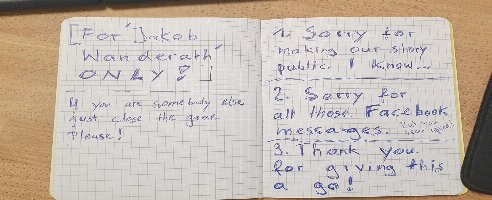 [For Jakob
Wanderath
ONLY!]
If you are somebody else
just close the game.
Please!
1. Sorry for
making our story
public. I know...
2. Sorry for
all those Facebook
messages.
3. Thank you
for giving this
a go!